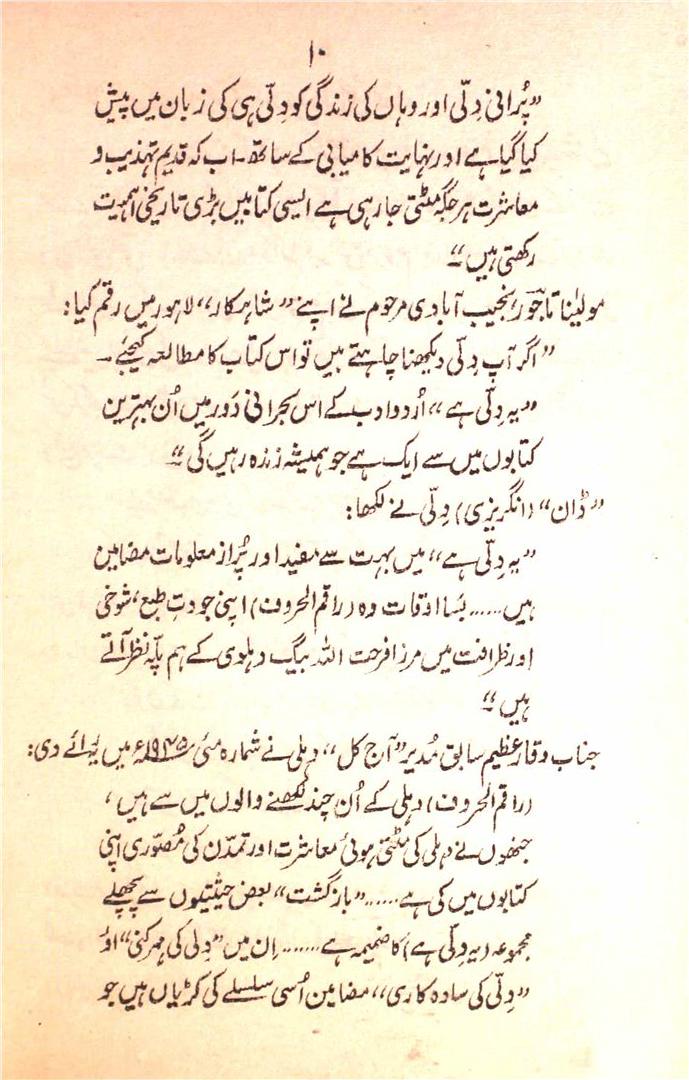 ۱۰
”پُرانی دِلّی اور وہاں کی زندگی کو دِلّی ہی کی زبان میں پیش
کیا گیا ہے اور نہایت کامیابی کے ساتھ۔ اب کہ قدیم تہذیب و
معاشرت ہر جگہ مٹتی جا رہی ہے ایسی کتابیں بڑی تاریخی اہمیت
رکھتی ہیں“
مولیٰنا تاجورؔ نجیب آبادی مرحوم نے اپنے ”شاہکار“ لاہور میں رقم کیا:
”اگر آپ دِلّی دیکھنا چاہتے ہیں تو اس کتاب کا مطالعہ کیجئے۔
”یہ دِلّی ہے“ اُردو ادب کے اس بحرانی دَور میں اُن بہترین
کتابوں میں سے ایک ہے جو ہمیشہ زندہ رہیں گی“
”ڈان“ (انگریزی) دِلّی نے لکھا:
”یہ دِلّی ہے“ میں بہت سے مفید اور پُراز معلومات مضامین
ہیں..... بسا اوقات وہ (راقم الحروف) اپنی جودتِ طبع، شوخی
اور ظرافت میں مرزا فرحت اللہ بیگ دہلوی کے ہم پلّہ نظر آتے
ہیں“
جناب وقار عظیم سابق مُدیر ”آج کل“ دہلی نے شمارہ مئی ۱۹۴۵ء میں یہ رائے دی:
(راقم الحروف) دہلی کے اُن چند لکھنے والوں میں سے ہیں،
جنھوں نے دہلی کی مٹتی ہوئی معاشرت اور تمدّن کی مُصوّری اپنی
کتابوں میں کی ہے..... ”بازگشت“ بعض حیثیتوں سے پچھلے
مجموعہ (یہ دِلّی ہے) کا ضمیمہ ہے....... اِن میں ”دِلی کی مہرکنی“ اور
”دِلّی کی سادہ کاری“ مضامین اُسی سلسلے کی کڑیاں ہیں جو